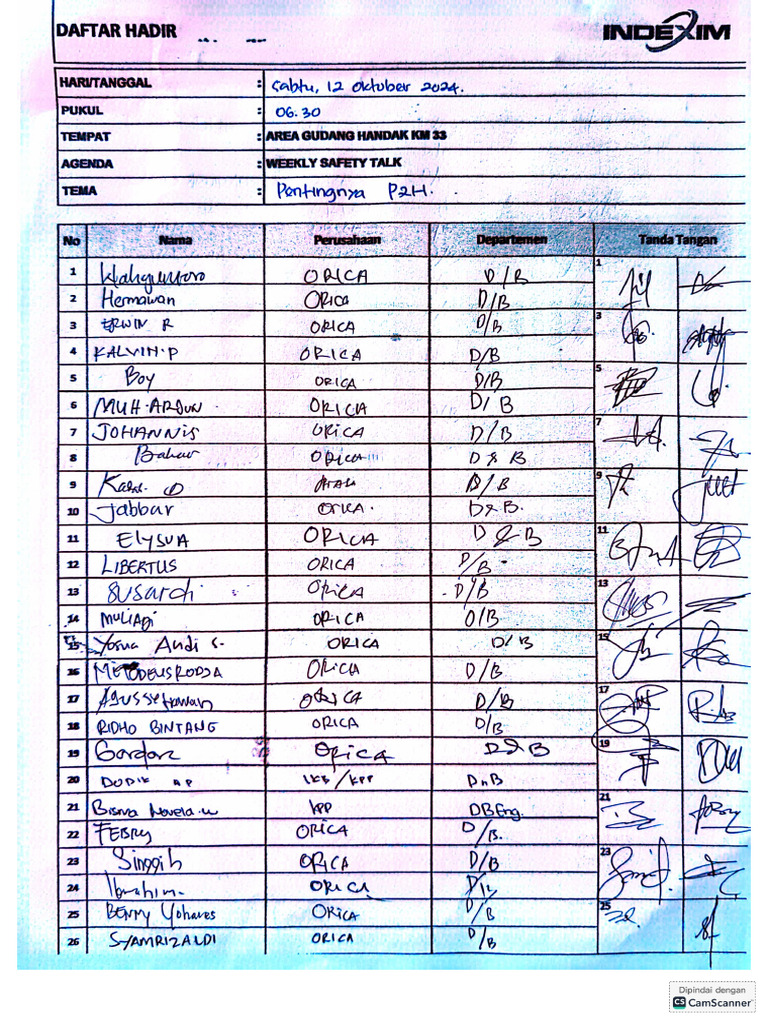 DAFTAR HADIR INDEXIM
HARI/TANGGAL : Sabtu, 12 Oktober 2024.
PUKUL : 06.30
TEMPAT : AREA GUDANG HANDAK KM 33
AGENDA : WEEKLY SAFETY TALK
TEMA : Pentingnya P2H.
No Nama Perusahaan Departemen Tanda Tangan
1 ORICA D/B 1
2 Hermawan ORICA D/B
3 ERWIN R ORICA D/B 3
4 KALVIN.P ORICA D/B
5 Boy ORICA D/B 5
6 MUH.ARJUN ORICA D/B
7 JOHANNIS ORICA D/B 7
8 Bahar ORICA D & B
9 D/B 9
10 Jabbar ORICA. D&B.
11 ELYSUA ORICA D & B 11
12 LIBERTUS ORICA D/B
13 SUSARDI ORICA D/B 13
14 MULIADI ORICA D/B
15 Yosua Andi S. ORICA D/B 15
16 METODEUSRODJA ORICA D/B
17 Agussetiawan ORICA D/B 17
18 RIDHO BINTANG ORICA D/B
19 Gordon ORICA D&B 19
20 DODIK AP /KPP DnB
21 Bisma KPP DBEng. 21
22 FEBRY ORICA D/B.
23 Singgih ORICA D/B 23
24 Ibrahim. ORICA D/B
25 BENNY Yohanes ORICA D/B 25
26 SYAMRIZALDI ORICA D/B
Dipindai dengan
CS CamScanner